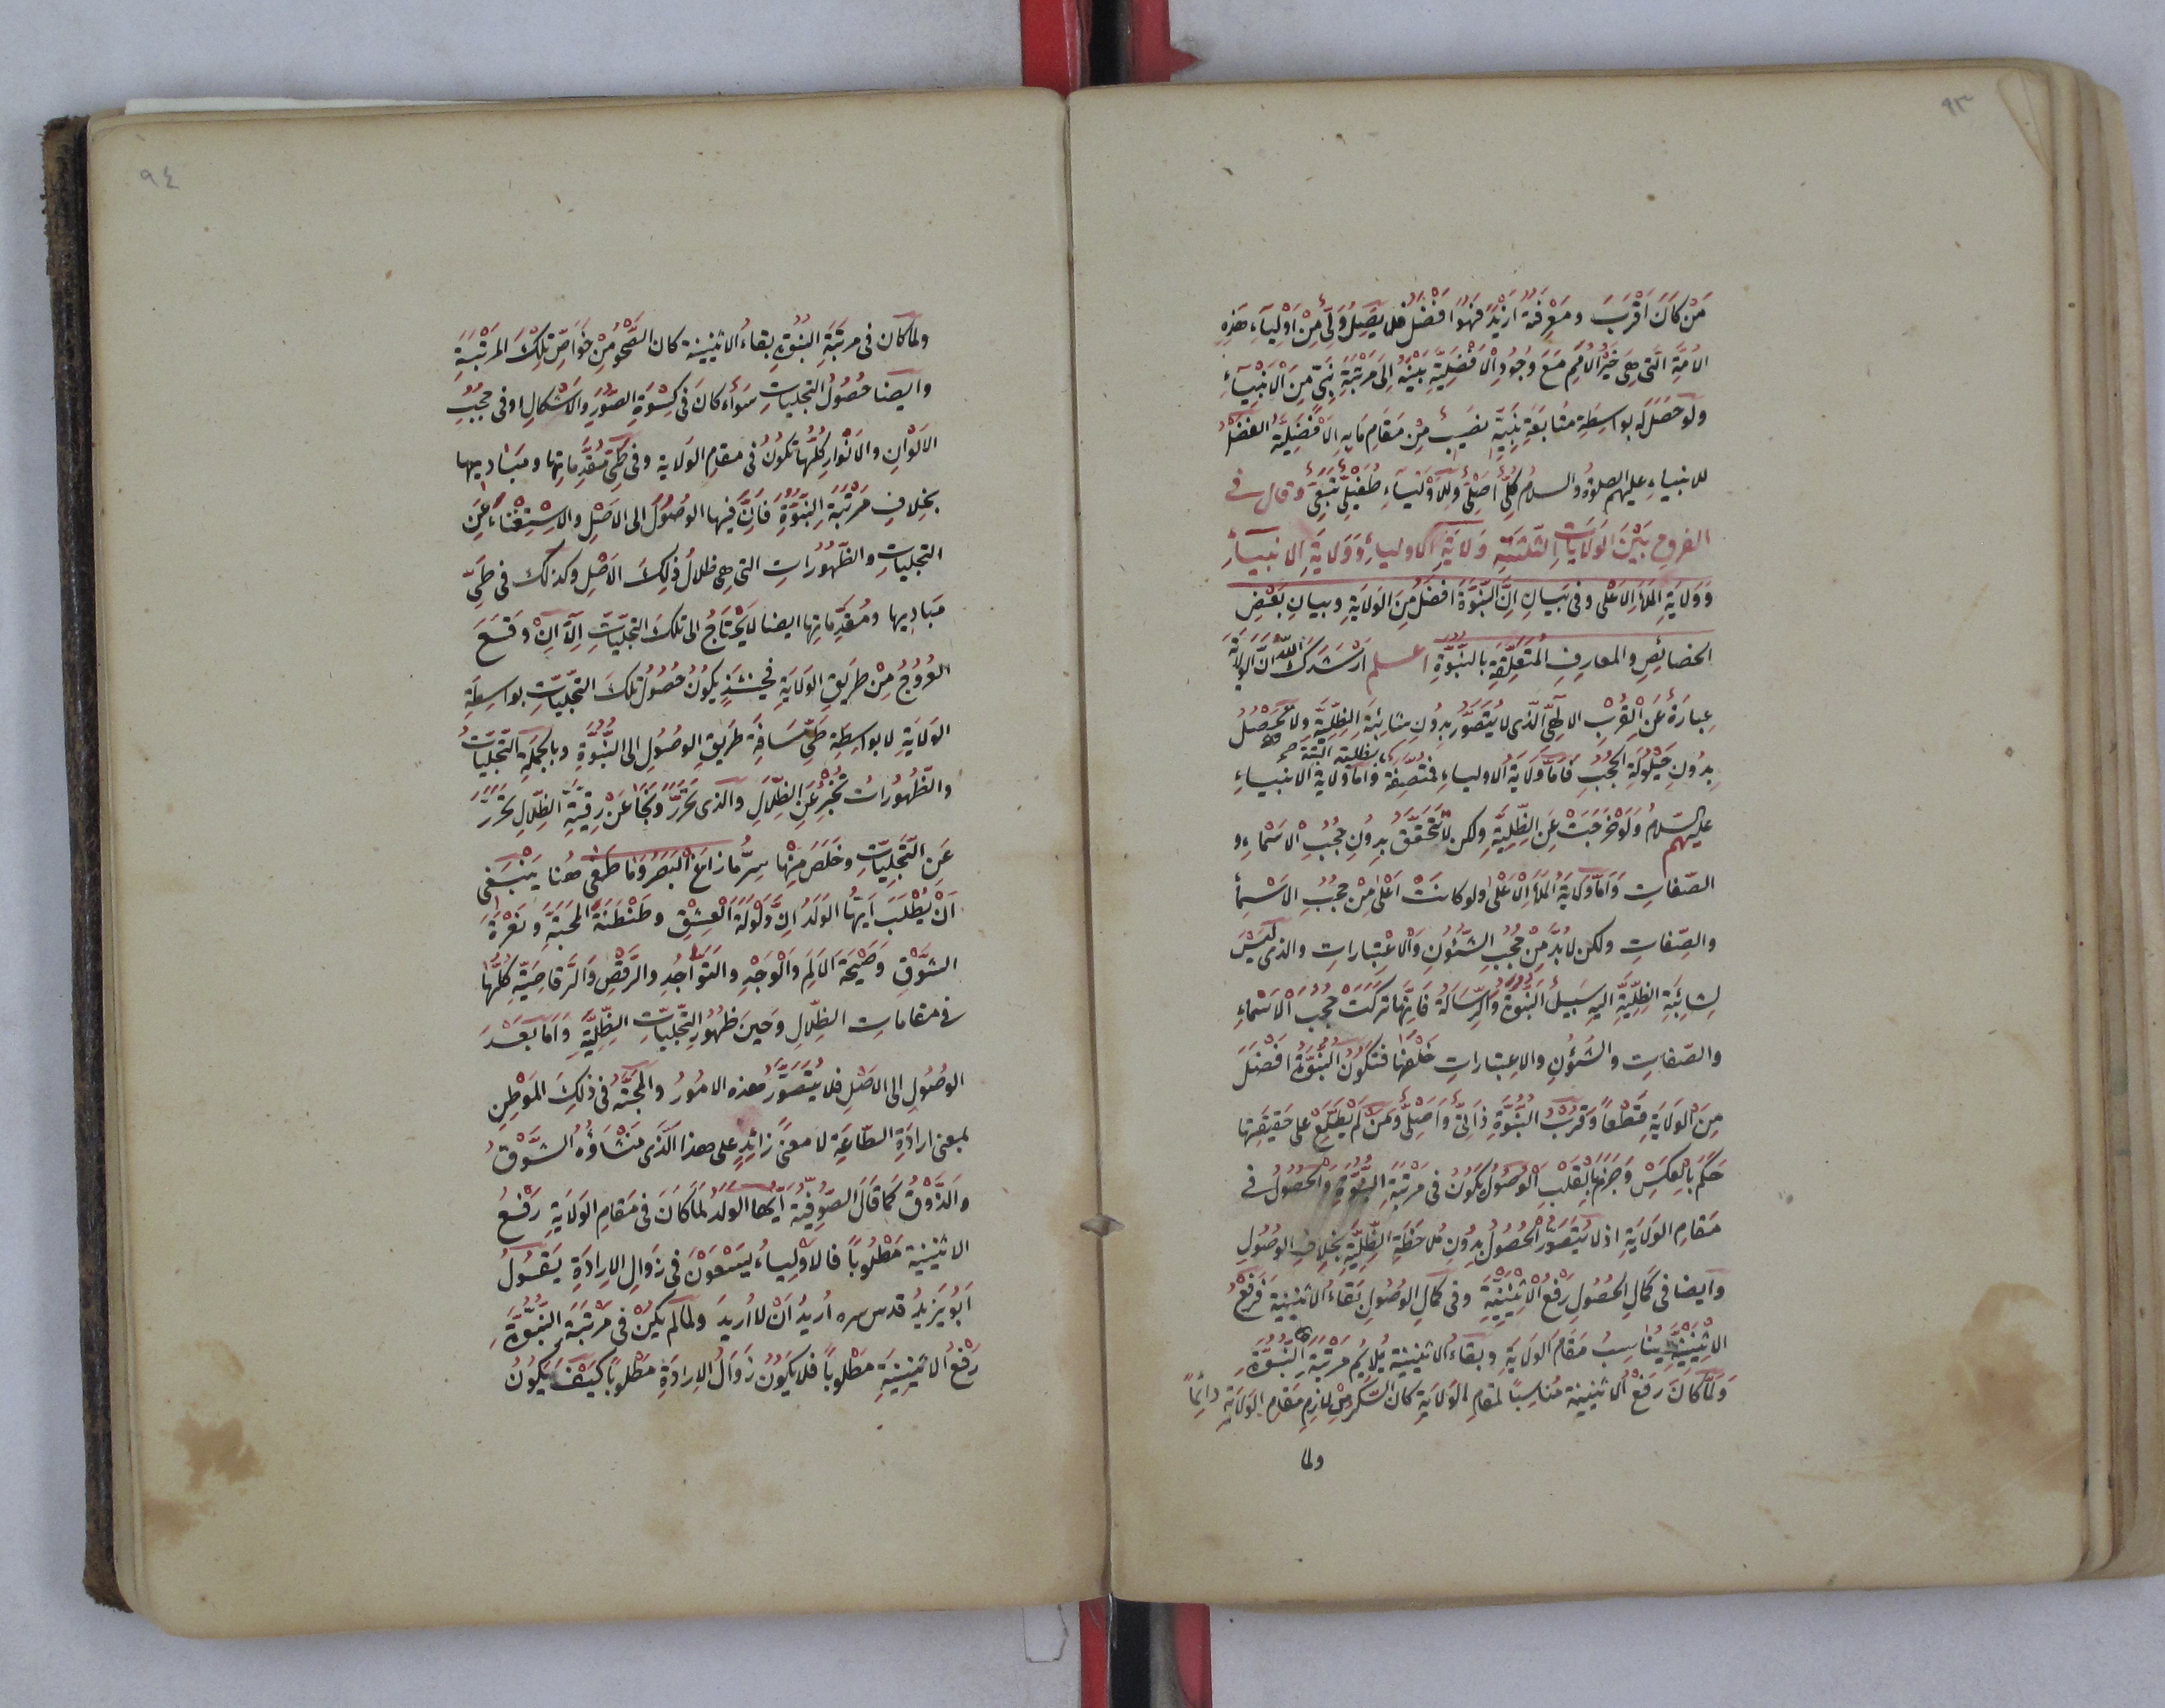 ٩٣
مَنْ كَانَ اَقْرَبَ ومَعْرِفَةً اَزْيَدَ فَهُوَ اَفْضَلُ فلا يَصِلُ وَلِىٌّ مِنْ اَوْلِيَاءِ هٰذِهِ
الاُمَّةِ الَّتى هِىَ خَيْرُ الاُمَمِ مَعَ وُجُودِ الْاَفْضَلِيَّةِ بَيْنَهُ اِلٰى مَرْتَبَةِ نَبِىٍّ مِنَ الْاَنْبِيَاءِ
ولو حَصَلَ لَهُ بواسِطَةِ مُتابَعَةِ نَبِيِّهِ نَصِيبٌ مِنْ مَقامِ مَا بِهِ الاَفْضَلِيَّةُ الفَضْلُ
للانبياءِ عليهم الصلوةُ والسلامُ كُلِّىٌّ اَصْلِىٌّ وَلِلْاَوْلِيَاءِ طُفَيْلِىٌّ تَبَعِىٌّ وقال فى
الفروقِ بَيْنَ الوَلاياتِ الثَّلثَةِ وَلايَةِ الاولياءِ وَوَلايَةِ الانبياءِ
وَوَلايَةِ المَلَأِ الاَعْلٰى وفى بَيانِ اَنَّ النُّبُوَّةَ اَفْضَلُ مِنَ الوَلايَةِ وبيانِ بَعْضِ
الخصائِصِ والمعارِفِ المُتَعَلِّقَةِ بالنُّبُوَّةِ اعلم اَرْشَدَكَ اللّٰهُ اَنَّ الوِلايَةَ
عِبَارَةٌ عَنِ القُرْبِ الالٰهِىِّ الَّذى لا يُتَصَوَّرُ بِدُونِ شائِبَةِ الظِّلِّيَّةِ ولا يَحْصُلُ
بِدُونِ حَيْلُولَةِ الحُجُبِ فَامَّا وَلايَةُ الاولياءِ فمُتَّصِفَةٌ بظلية البتة صح وَاَمَّا وَلايَةُ الانبياءِ
عليهم السّلامُ وَلَوْ خَرَجَتْ عَنِ الظِّلِّيَّةِ ولكن لا تَتَحَقَّقُ بِدُونِ حُجُبِ الاَسْماءِ و
الصّفاتِ وَاَمَّا وَلايَةُ المَلَأِ الاَعْلٰى ولو كانَتْ اَعْلٰى مِنْ حُجُبِ الاَسْماءِ
والصّفاتِ ولكن لا بُدَّ مِنْ حُجُبِ الشُّئُونِ والاعْتِباراتِ والذى لَيْسَ
لِشائِبَةِ الظِّلِّيَّةِ اليهِ سَبيلٌ النُّبُوَّةُ والرِّسَالَةُ فَاِنَّها تَرَكَتْ حُجُبَ الْاَسْماءِ
والصّفاتِ والشُّؤُنِ والاعتباراتِ خَلْفَها فتَكُونُ النُّبُوَّةُ اَفْضَلَ
مِنَ الوَلايَةِ قَطْعًا وَقُرْبُ النُّبُوَّةِ ذاتِىٌّ وَاَصْلِىٌّ وَمَنْ لَمْ يَطَّلِعْ على حَقيقَتِها
حَكَمَ بالعَكْسِ وَجَزَمَ بالقَلْبِ الوُصُولُ يَكُونُ فى مَرْتَبَةِ النُّبُوَّةِ وَالحُصُولُ فى
مَقامِ الوَلايَةِ اذ لا يُتَصَوَّرُ الحُصُولُ بِدُونِ مُلاحَظَةِ الظِّلِّيَّةِ بخِلافِ الوصُولِ
وايضا فى كَمالِ الحُصُولِ رَفْعُ الاثْنَيْنِيَّةِ وفى كمالِ الوصُولِ بَقاءُ الاثنينيةِ فَرَفْعُ
الاثْنَيْنِيَّةِ يُناسِبُ مَقامَ الوَلايَةِ وبقاءُ الاثنينيةِ يُلايِمُ مَرْتَبَةَ النُّبُوَّةِ
وَلَمَّا كانَ رَفْعُ الاثنينية مُناسِبًا لمقامِ الوَلايَةِ كان السُّكْرُ مِنْ لازِمِ مَقامِ الوَلايَةِ دائِمًا
ولما
٩٤
ولما كان فى مرتبَةِ النُّبُوَّةِ بقاءُ الاثنينية كان الصَّحْوُ مِنْ خَوَاصِّ تِلْكَ المَرْتَبَةِ
وايضا حُصُولُ التجلياتِ سَواءٌ كانَ فى كِسْوَةِ الصُّوَرِ والاَشْكالِ او فى حُجُبِ
الاَلْوَانِ والانْوارِ كُلُّها تَكُونُ فى مقامِ الوَلاية وفى طَىِّ مُقَدِّماتِها ومَبَاديها
بخِلافِ مَرْتَبَةِ النُّبُوَّةِ فَاِنَّ فيها الوصُولَ الى الاَصْلِ والاِسْتِغْنَاءَ عَنِ
التجلياتِ والظُّهُورَاتِ التى هى ظلالُ ذٰلِكَ الاَصْلِ وكذٰلك فى طَىِّ
مَبَادِيها ومُقَدِّماتِها ايضا لا يَحْتَاجُ الى تلكَ التجلّياتِ اِلّا اَنْ وَقَعَ
العُرُوجُ مِنْ طَرِيقِ الوَلايَةِ فحينئذٍ يكونُ حُصُولُ تلكَ التجلّياتِ بواسِطَةِ
الوَلايَةِ لا بواسِطَةِ طَىِّ مَسَافَةِ طَرِيقِ الوصُولِ الى النُّبُوَّةِ وبالجُمْلَةِ التجلّياتُ
والظُّهُورَاتُ تُخْبِرُ عَنِ الظِّلالِ والذى تَحَرَّرَ وَنَجَا عَنْ رِقِّيَّةِ الظِّلالِ تَحَرَّرَ
عَنِ التجلّياتِ وخَلَصَ مِنْها سِرُّ مازَاغَ الْبَصَرُ وَمَا طَغٰى هُنا يَنْبَغى
اَنْ يُطْلَبَ اَيُّها الوَلَدُ اِنَّ وَلْوَلَةَ العِشْقِ وطَنْطَنَةَ المَحَبَّةِ ونَعْرَةَ
الشَّوْقِ وَصَيْحَةَ الاَلَمِ وَالْوَجْدِ والتَوَاجُدِ والرَّقْصِ وَالرَّقاصِيَّةِ كُلُّها
فى مقاماتِ الظِّلالِ وَحِينَ ظُهُورِ التجلّياتِ الظِّلِّيَّةِ وَاَمَّا بَعْدَ
الوصُولِ الى الاَصْلِ فلا يُتَصَوَّرُ هذه الامُورُ والمَحَبَّةُ فى ذٰلِكَ المَوْطِنِ
بمعنى ارادَةِ الطّاعَةِ لا معنًى زائدٍ على هذا الَّذى مَنْشَاؤُهُ الشَّوْقُ
والذَّوْقُ كَما قالَ الصُّوفِيَّةُ اَيُّها الوَلَدُ لَمّا كانَ فى مَقامِ الوَلايَةِ رَفْعُ
الاثنينية مَطْلُوبًا فالاَوْلِياءُ يَسْعَوْنَ فى زَوالِ الاِرادَةِ يَقُولُ
اَبُو يَزيدُ قدس سره اُريدُ اَنْ لا اُريدَ ولما لم يكُنْ فى مَرْتَبَةِ النُّبُوَّةِ
رَفْعُ الاثنينيةِ مَطْلُوبًا فلا يَكُونُ زَوالُ الاِرادَةِ مَطْلوبًا كَيْفَ يَكُونُ